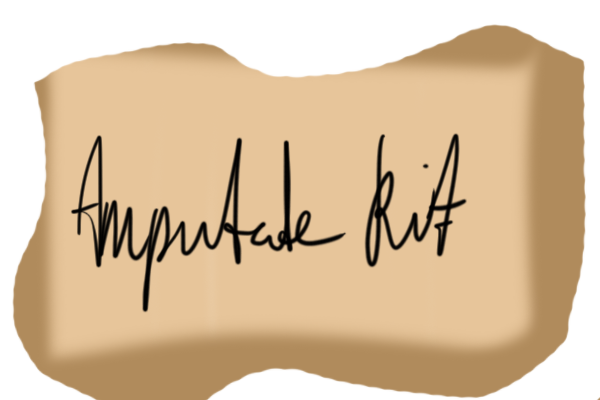 Amputate Kit